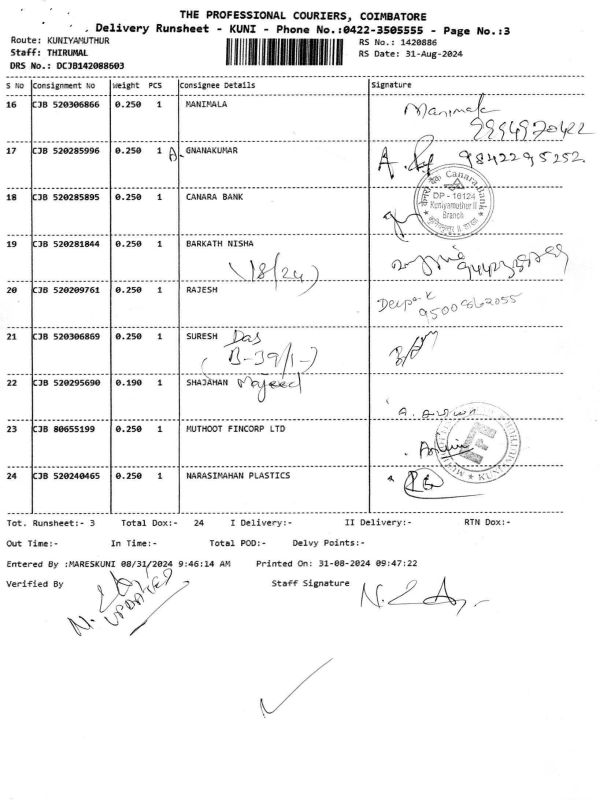 THE PROFESSIONAL COURIERS, COIMBATORE
Delivery Runsheet - KUNI - Phone No.:0422-3505555 - Page No.:3
Route: KUNIYAMUTHUR RS No.: 1420886
Staff: THIRUMAL RS Date: 31-Aug-2024
DRS No.: DCJB142088603
S No Consignment No Weight PCS Consignee Details Signature
16 CJB 520306866 0.250 1 MANIMALA Manimala
9994970422
17 CJB 520285996 0.250 1 A. GNANAKUMAR A. 9842295252
18 CJB 520285895 0.250 1 CANARA BANK
Canara Bank
DP - 16124
Kuniyamuthur II
Branch
19 CJB 520281844 0.250 1 BARKATH NISHA
18/24)
20 CJB 520209761 0.250 1 RAJESH Deepa.K
21 CJB 520306869 0.250 1 SURESH Das
(B-39/1-)
22 CJB 520295690 0.190 1 SHAJAHAN Majeed
23 CJB 80655199 0.250 1 MUTHOOT FINCORP LTD
24 CJB 520240465 0.250 1 NARASIMAHAN PLASTICS
Tot. Runsheet:- 3 Total Dox:- 24 I Delivery:- II Delivery:- RTN Dox:-
Out Time:- In Time:- Total POD:- Delvy Points:-
Entered By :MARESKUNI 08/31/2024 9:46:14 AM Printed On: 31-08-2024 09:47:22
Verified By Staff Signature
UPDATED